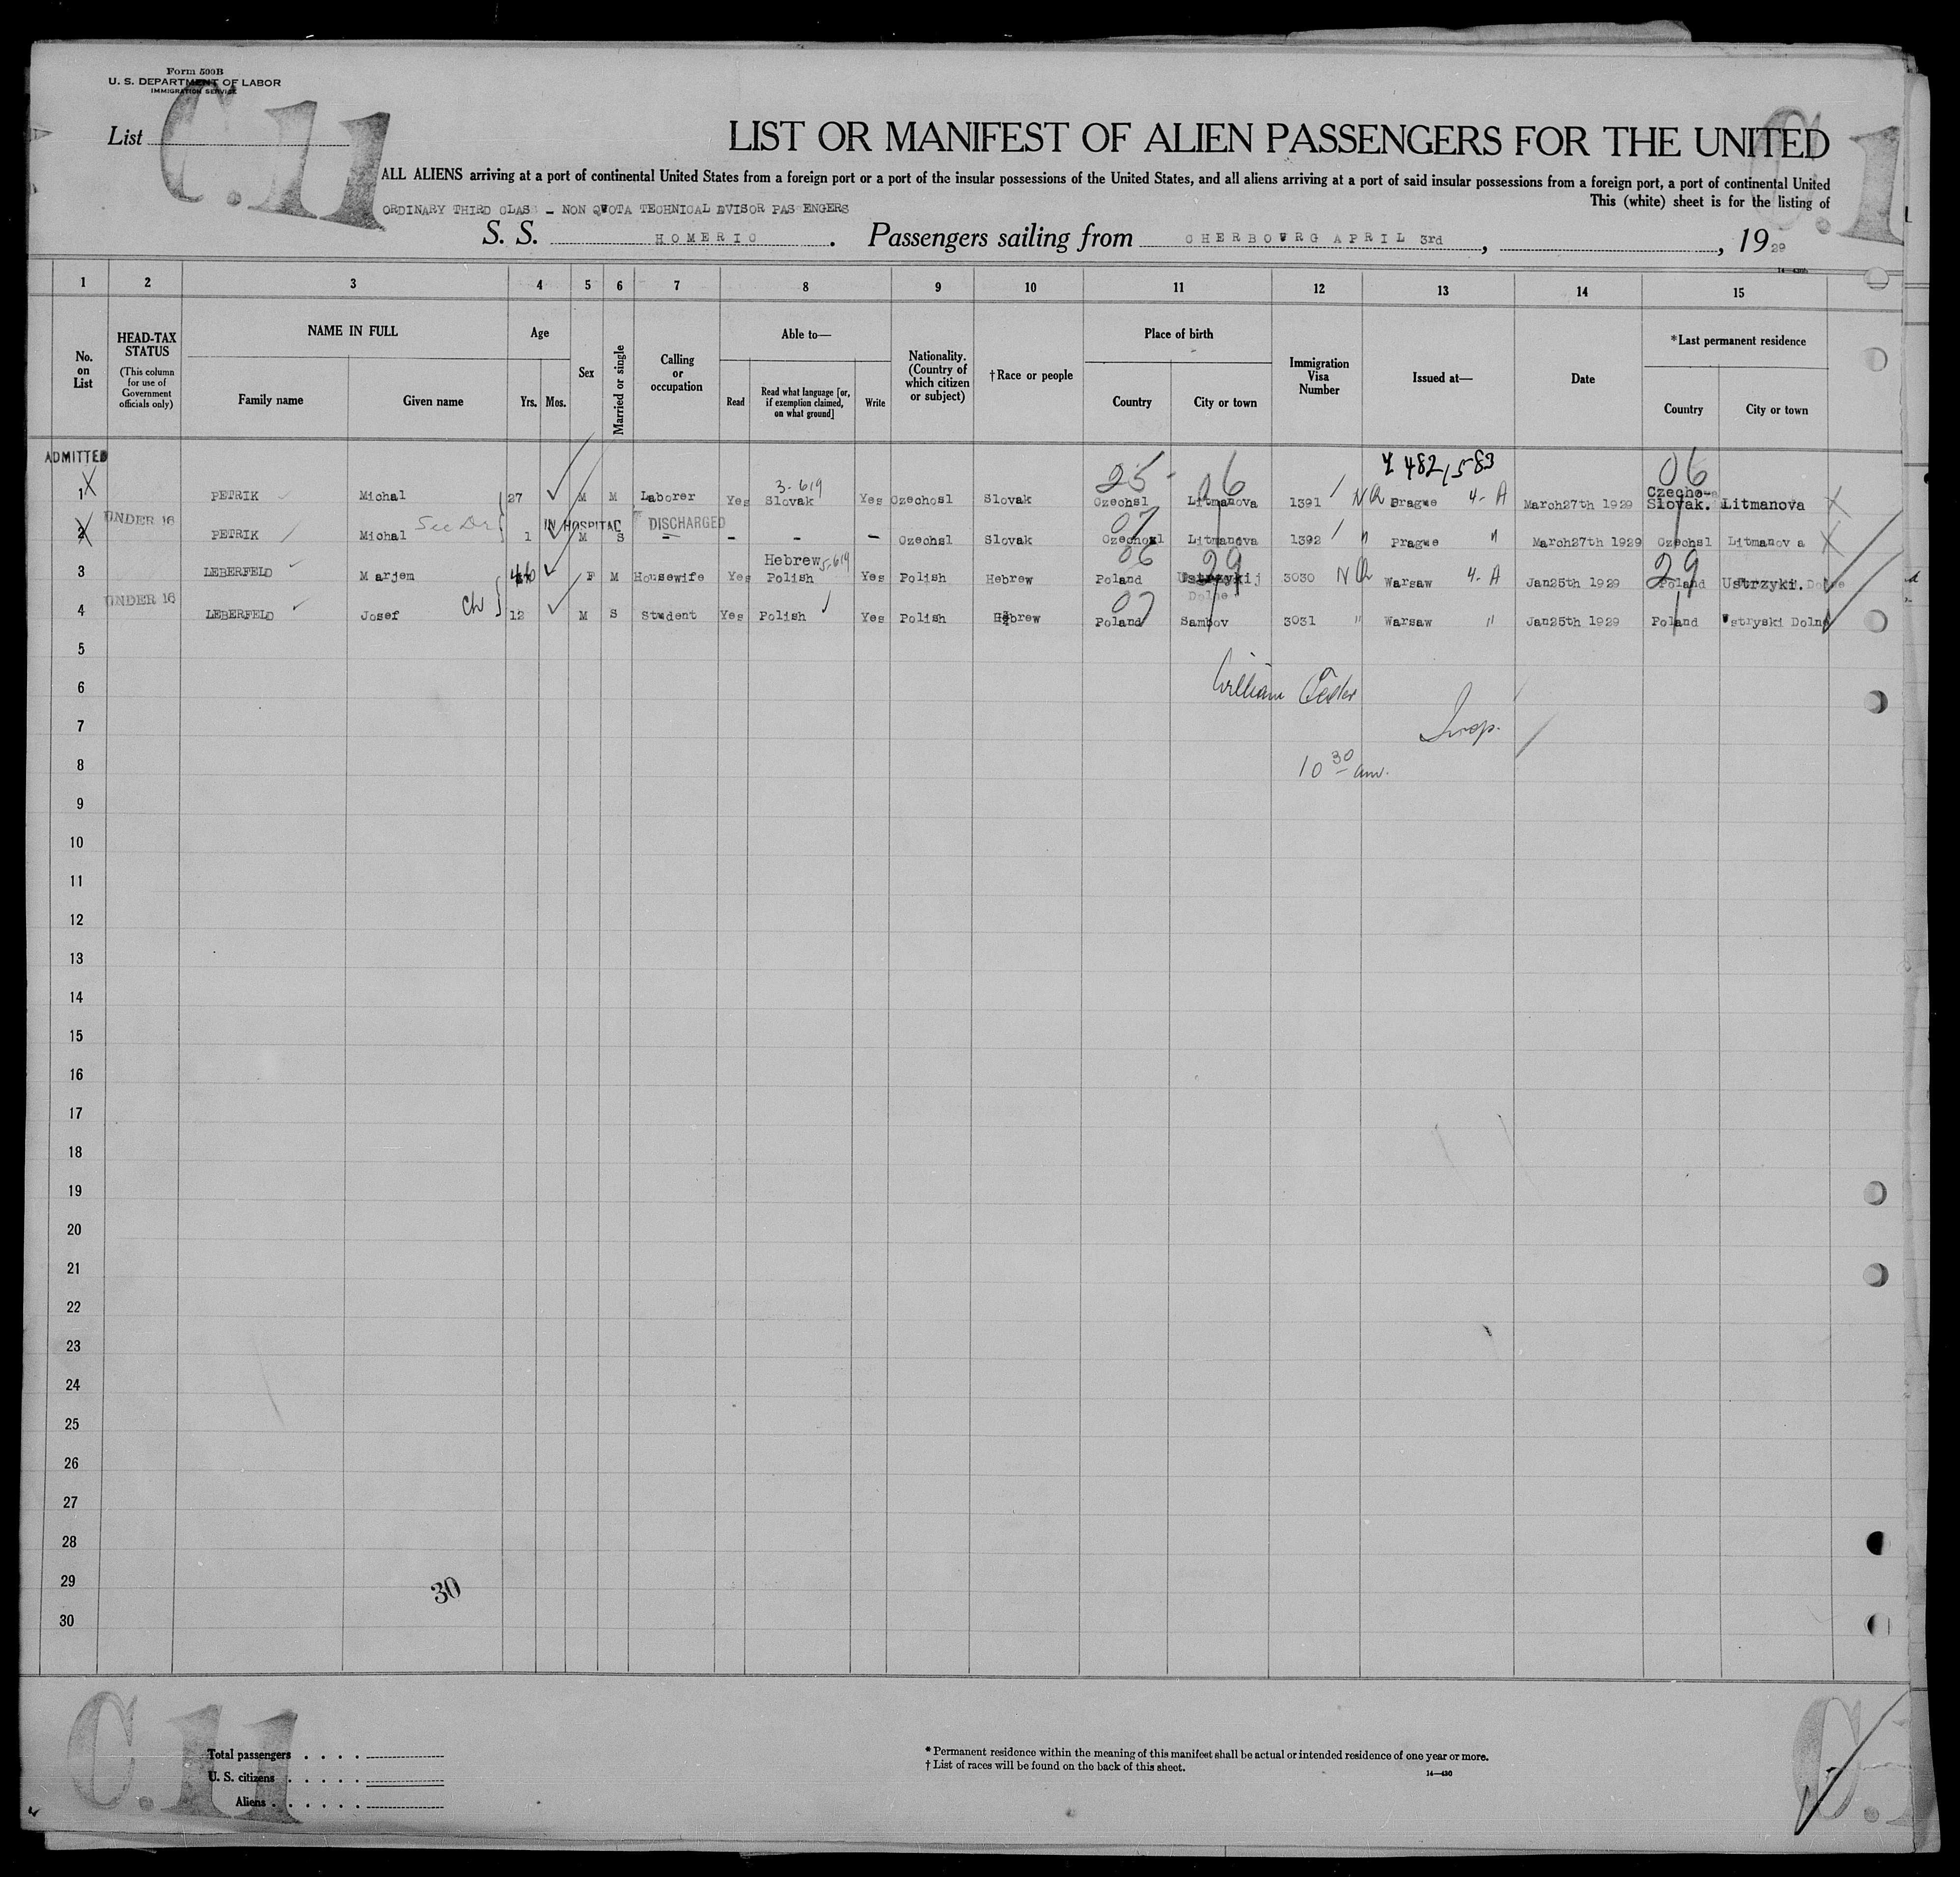 Form 500B
U. S. DEPARTMENT OF LABOR
IMMIGRATION SERVICE
C.11
C.1
List
LIST OR MANIFEST OF ALIEN PASSENGERS FOR THE UNITED
ALL ALIENS arriving at a port of continental United States from a foreign port or a port of the insular possessions of the United States, and all aliens arriving at a port of said insular possessions from a foreign port, a port of continental United
This (white) sheet is for the listing of
ORDINARY THIRD CLASS - NON QUOTA TECHNICAL DVISOR PAS ENGERS
S. S. HOMERIC. Passengers sailing from CHERBOURG APRIL 3rd, , 1929
1 2 3 4 5 6 7 8 9 10 11 12 13 14 15
No. on List
HEAD-TAX STATUS (This column for use of Government officials only)
NAME IN FULL
Family name Given name
Age
Yrs. Mos.
Sex
Married or single
Calling or occupation
Able to—
Read
Read what language [or, if exemption claimed, on what ground]
Write
Nationality. (Country of which citizen or subject)
†Race or people
Place of birth
Country City or town
Immigration Visa Number
Issued at—
Date
*Last permanent residence
Country City or town
ADMITTED
25 26 482,583 06
3-619
1 PETRIK Michal 27 M M Laborer Yes Slovak Yes Czechosl Slovak Czechsl Litmanova 1391 NQ Prague 4-A March27th 1929 Czecho- Slovak. Litmanova
UNDER 16 See Dr IN HOSPITAL DISCHARGED 07
2 PETRIK Michal 1 M S - - - - Czechsl Slovak Czechosl Litmanova 1392 " Prague " March27th 1929 Czechsl Litmanov a
Hebrew 5-619 06 29 29
3 LEBERFELD Marjem 46 F M Housewife Yes Polish Yes Polish Hebrew Poland Ustrzykij Dolne 3030 NQ Warsaw 4-A Jan25th 1929 Poland Ustrzyki. Dolne
UNDER 16 07
4 LEBERFELD Josef Ch 12 M S Student Yes Polish Yes Polish Hebrew Poland Sambov 3031 " Warsaw " Jan25th 1929 Poland Ustryski Dolne
5
6 William
7 Insp.
8 10 30 am.
9
10
11
12
13
14
15
16
17
18
19
20
21
22
23
24
25
26
27
28
29
30
30
C.11
Total passengers . . . .
U. S. citizens . . . . .
Aliens . . . . . .
* Permanent residence within the meaning of this manifest shall be actual or intended residence of one year or more.
† List of races will be found on the back of this sheet.
14—430
C.1